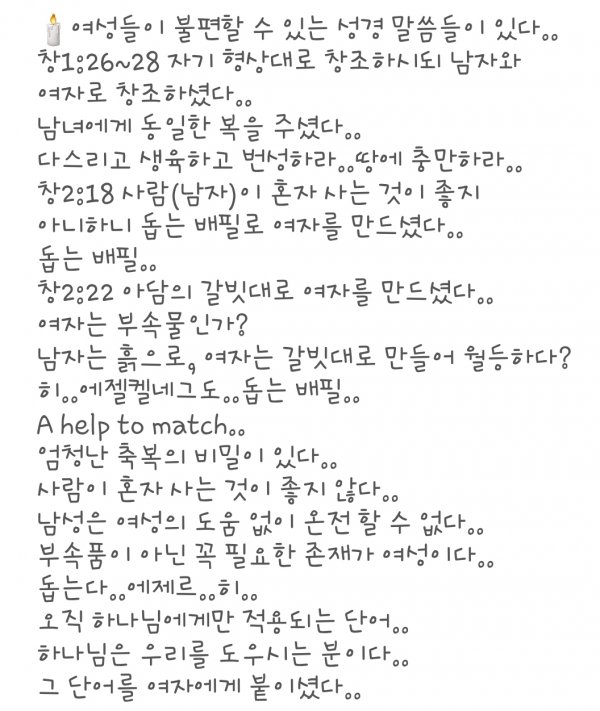 🕯 여성들이 불편할 수 있는 성경 말씀들이 있다..
창1:26~28 자기 형상대로 창조하시되 남자와
여자로 창조하셨다..
남녀에게 동일한 복을 주셨다..
다스리고 생육하고 번성하라..땅에 충만하라..
창2:18 사람(남자)이 혼자 사는 것이 좋지
아니하니 돕는 배필로 여자를 만드셨다..
돕는 배필..
창2:22 아담의 갈빗대로 여자를 만드셨다..
여자는 부속물인가?
남자는 흙으로, 여자는 갈빗대로 만들어 월등하다?
히..에젤켈네그도..돕는 배필..
A help to match..
엄청난 축복의 비밀이 있다..
사람이 혼자 사는 것이 좋지 않다..
남성은 여성의 도움 없이 온전 할 수 없다..
부속품이 아닌 꼭 필요한 존재가 여성이다..
돕는다..에제르..히..
오직 하나님에게만 적용되는 단어..
하나님은 우리를 도우시는 분이다..
그 단어를 여자에게 붙이셨다..